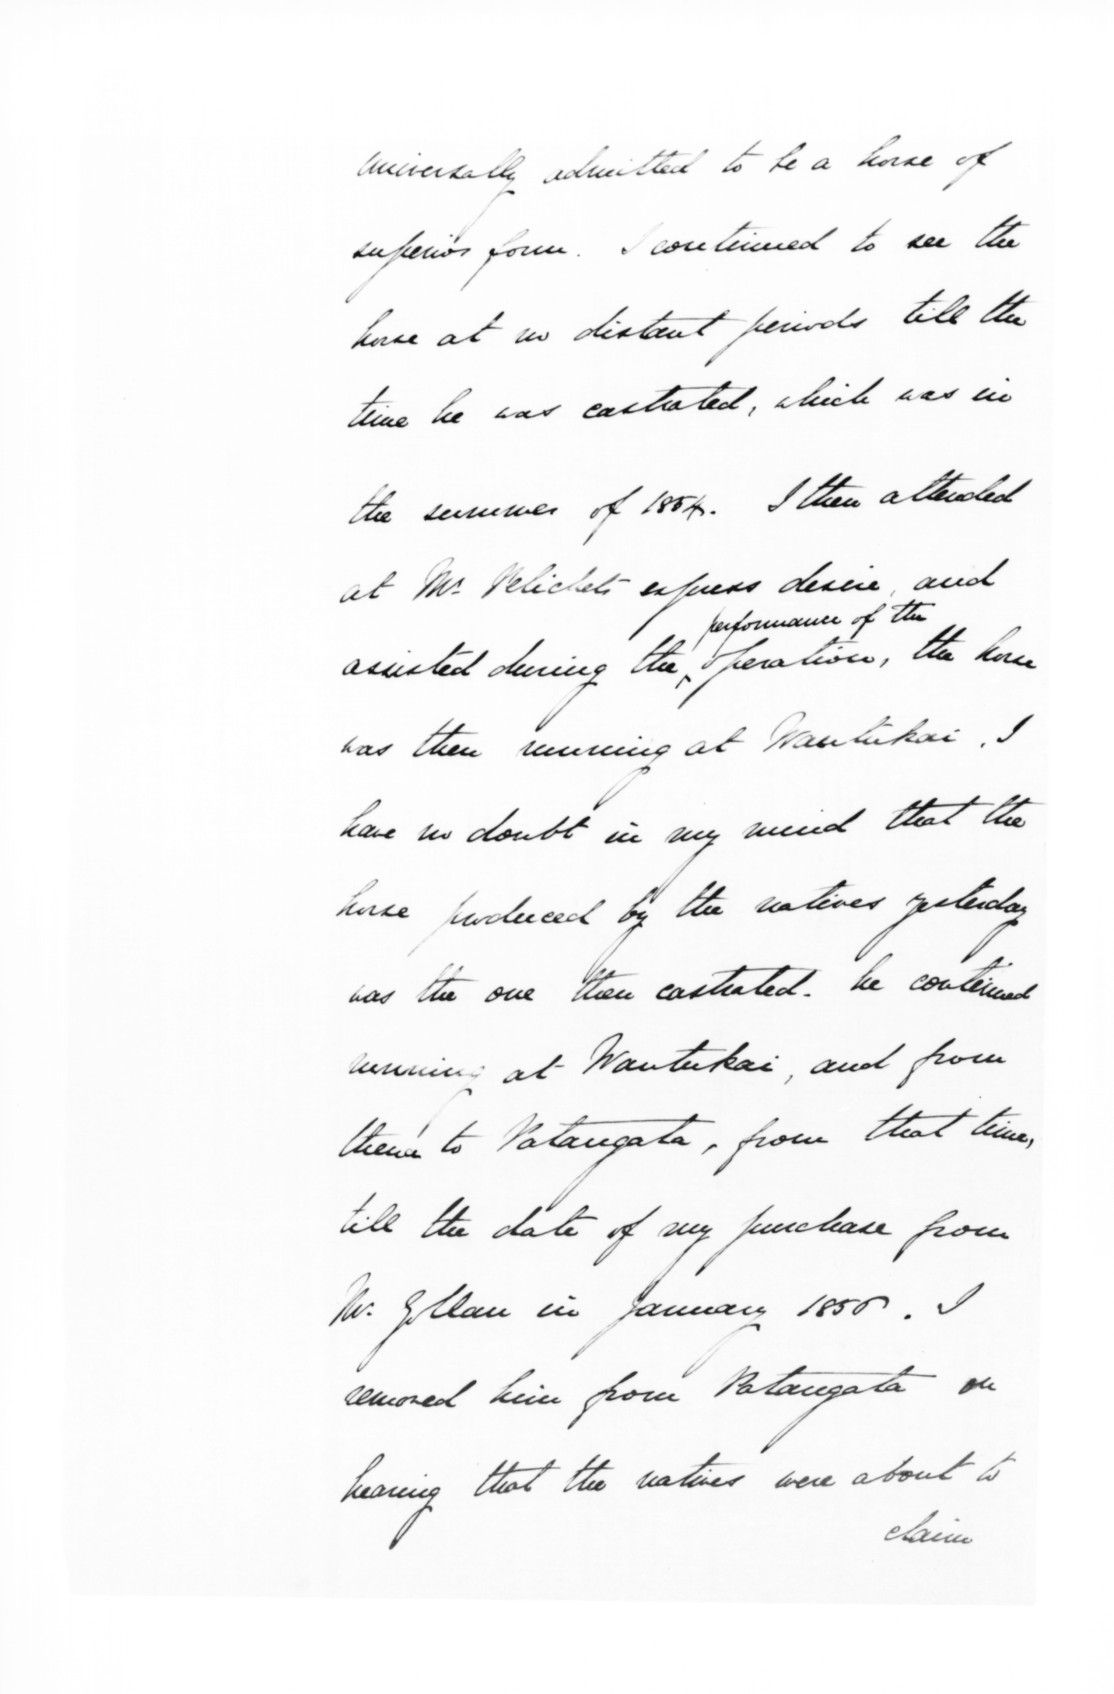 universally admitted to be a horse of
superior form. I continued to see the
horse at no distant periods till the
time he was castrated, which was in
the summer of 1854. I then attended
at Mr. express desire, and
performance of the
assisted during the operation, the horse
was then running at Wautukai. I
have no doubt in my mind that the
horse produced by the natives yesterday
was the one then castrated. he continued
running at Wautukai, and from
thence to Patangata, from that time,
till the date of my purchase from
Mr. Gollan in January . I
removed him from Patangata on
hearing that the natives were about to
claim